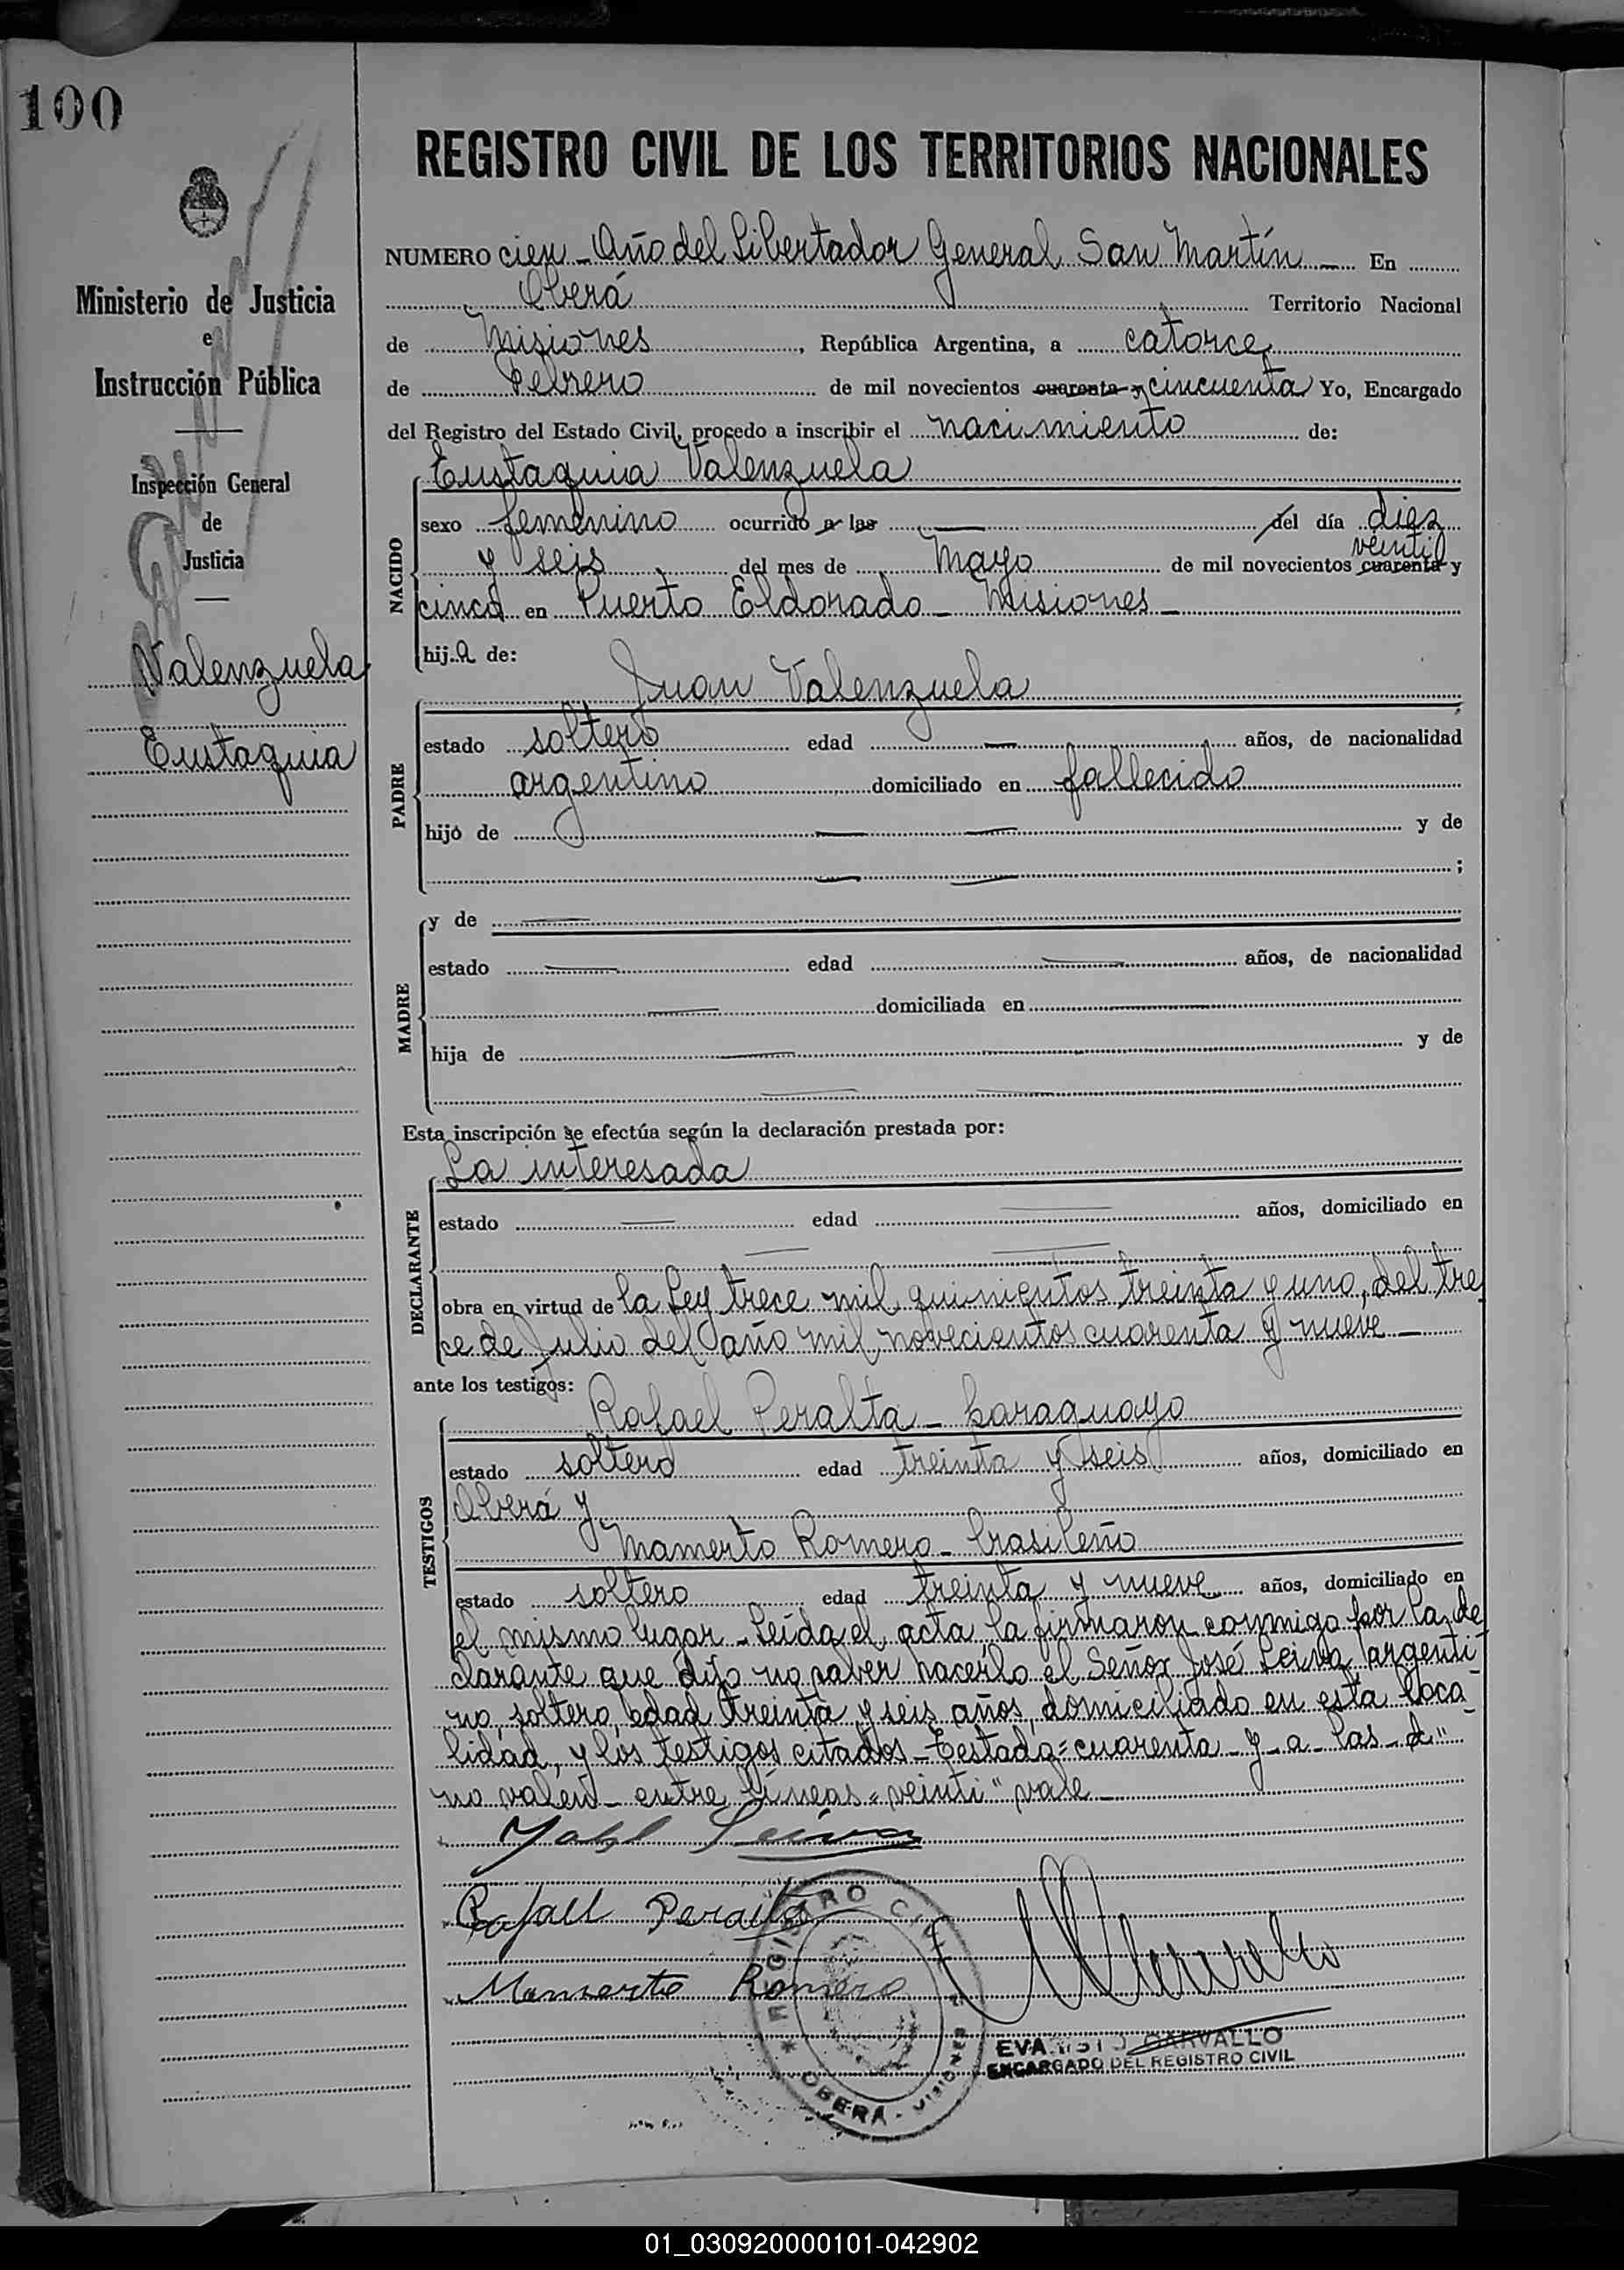 100
REGISTRO CIVIL DE LOS TERRITORIOS NACIONALES
Ministerio de Justicia
e
Instrucción Pública
Inspección General
de
Justicia
Valenzuela
Eustaquia
NUMERO cien - Año del Libertador General San Martín - En
Oberá Territorio Nacional
de Misiones, República Argentina, a catorce
de Febrero de mil novecientos cuarenta y cincuenta Yo, Encargado
del Registro del Estado Civil, procedo a inscribir el nacimiento de:
Eustaquia Valenzuela
NACIDO
sexo femenino ocurrido a las — del día diez
veinti
y seis del mes de Mayo de mil novecientos cuarenta y
cinco en Puerto Eldorado - Misiones -
hija de:
Juan Valenzuela
PADRE
estado soltero edad — años, de nacionalidad
argentino domiciliado en fallecido
hijo de — — y de
— — ;
MADRE
y de —
estado — edad — años, de nacionalidad
— domiciliada en —
hija de — — y de
— —
Esta inscripción se efectúa según la declaración prestada por:
La interesada
DECLARANTE
estado — edad — años, domiciliado en
— —
obra en virtud de la Ley trece mil quinientos treinta y uno, del tre
ce de Julio del año mil novecientos cuarenta y nueve -
ante los testigos:
Rafael Peralta - paraguayo
TESTIGOS
estado soltero edad treinta y seis años, domiciliado en
Oberá y
Mamerto Romero - brasileño
estado soltero edad treinta y nueve años, domiciliado en
el mismo lugar - Leída el acta la firmaron conmigo por la de
clarante que dijo no saber hacerlo el Señor José Leiva argenti-
no, soltero, edad treinta y seis años, domiciliado en esta loca-
lidad, y los testigos citados - Testado = cuarenta - y - a - las - d"
no valen - entre líneas = veinti" vale -
José Leiva
Rafael Peralta
Mamerto Romero
REGISTRO CIVIL
* OBERÁ - MISIONES
EVARISTO CARVALLO
ENCARGADO DEL REGISTRO CIVIL
01_030920000101-042902